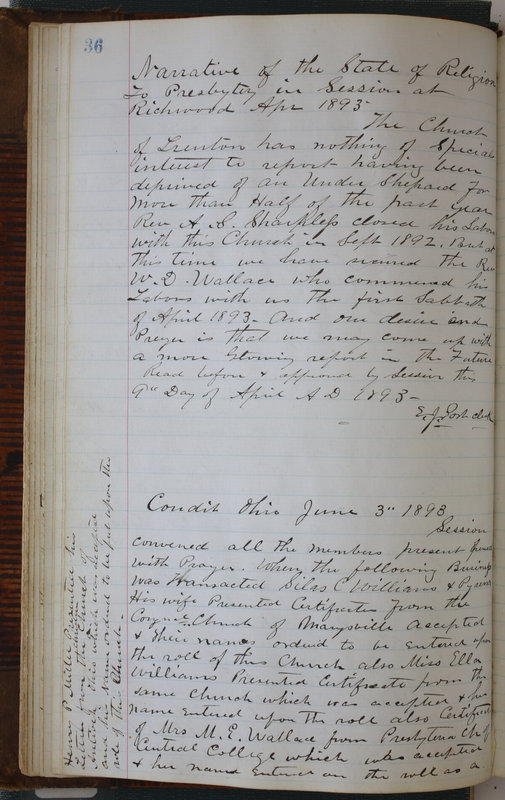 36
Narrative of the State of Religion
To Presbytery in Session at
Richwood Apr 1893-
The Church
of Trenton has nothing of Special
interest to report having been
deprived of an Under Shepard For
more than Half of the past year
Rev A. S. Sharpless closed his Labors
with this Church in Sept 1892. But at
this time we have secured the Rev
W. D. Wallace who commenced his
Labors with us the first Sabbath
of April 1893- And our desire and
Prayer is that we may come up with
a more Glowing report in the Future
Read before & approved by Session this
9th Day of April A D 1893-
E. J. Post clerk
Condit Ohio June 3" 1893
Session
convened all the members present
with Prayer. When the following Business
was transacted Silas C Williams &
His wife Presented Certificates from the
Church of Marysville Accepted
& their names ordered to be entered upon
the roll of this Church also Miss Ella
Williams Presented Certificate from the
same Church which was accepted & her
name entered upon the roll also Certificate
of Mrs M. E. Wallace from Presbyterian Ch of
Central College which was accepted
& her name entered on the roll as a
Henry P. Miller Presented his
Letter from the Church of
Ohio which was accepted
and his name ordered to be put upon the
role of this Church-